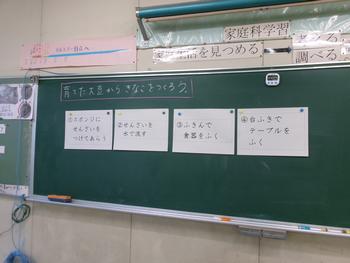 家庭科学習
を見つめる
調べる
育てた大豆からきなこをつくろう
①スポンジに
せんざいを
つけてあらう
②せんざいを
水で流す
③ふきんで
食器をふく
④台ふきで
テーブルを
ふく